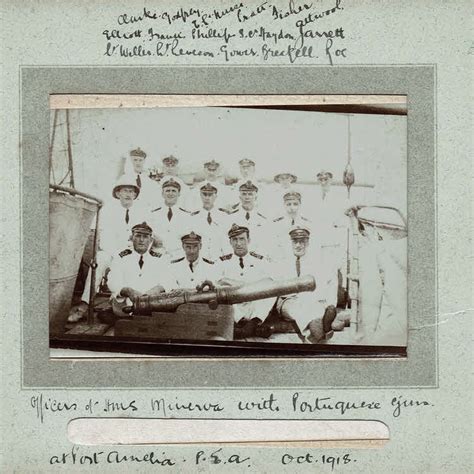 Clarke. Godfrey. Pratt. Fisher
Elliott. Phillips. Haydon. Jarrett
Lt Willes. Lt Leveson. Gower. Fox
Officers of HMS Minerva with Portuguese gun.
at Port Amelia. P.E.a. Oct. 1918.